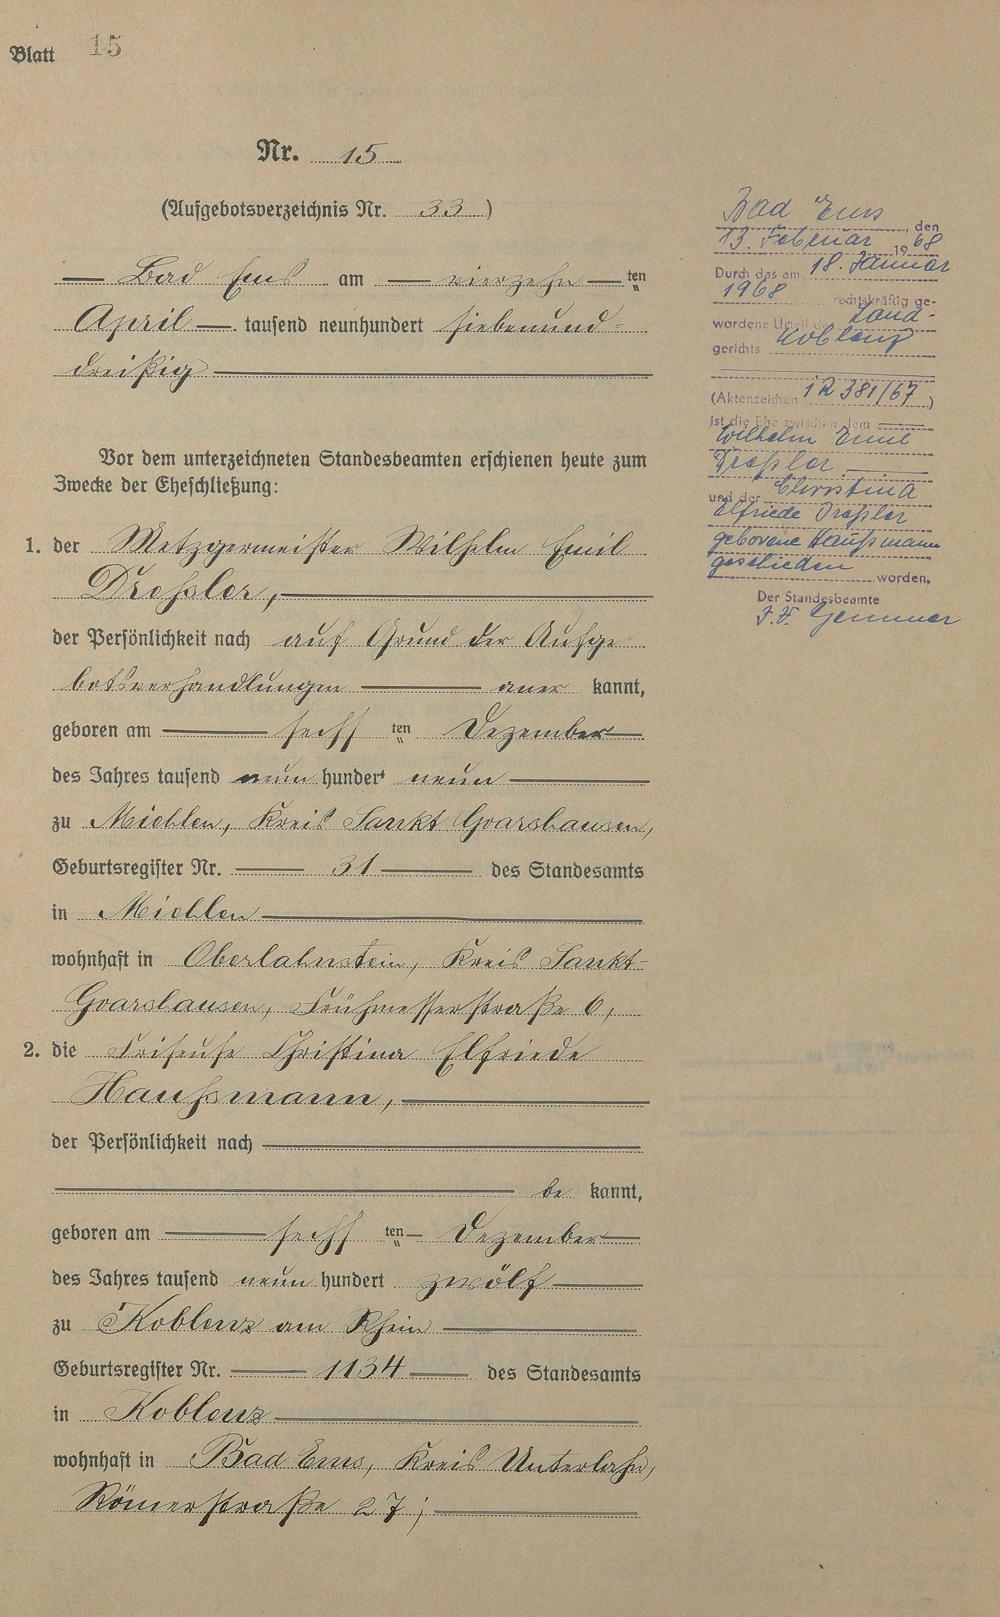 Blatt 15
Nr. 15
(Aufgebotsverzeichnis Nr. 33)
Bad Ems am vierzehnten
April tausend neunhundert siebenund-
dreißig
Vor dem unterzeichneten Standesbeamten erschienen heute zum
Zwecke der Eheschließung:
1. der Metzgermeister Wilhelm Emil
Dreßler,
der Persönlichkeit nach auf Grund der Aufge-
botsverhandlungen aner kannt,
geboren am sechsten Dezember
des Jahres tausend neun hundert neun
zu Miehlen, Kreis Sankt Goarshausen,
Geburtsregister Nr. 31 des Standesamts
in Miehlen
wohnhaft in Oberlahnstein, Kreis Sankt-
Goarshausen, Frühmesserstraße 6,
2. die Friseuse Christina Elfriede
Haußmann,
der Persönlichkeit nach
be kannt,
geboren am sechsten Dezember
des Jahres tausend neun hundert zwölf
zu Koblenz am Rhein
Geburtsregister Nr. 1134 des Standesamts
in Koblenz
wohnhaft in Bad Ems, Kreis Unterlahn,
Römerstraße 27;
Bad Ems, den
13. Februar 1968
Durch das am 18. Januar
1968 rechtskräftig ge-
wordene Urteil des Land-
gerichts Koblenz
(Aktenzeichen 1 R 381/67)
ist die Ehe zwischen dem
Wilhelm Emil
Dreßler
und der Christina
Elfriede Dreßler
geborene Haußmann
geschieden worden.
Der Standesbeamte